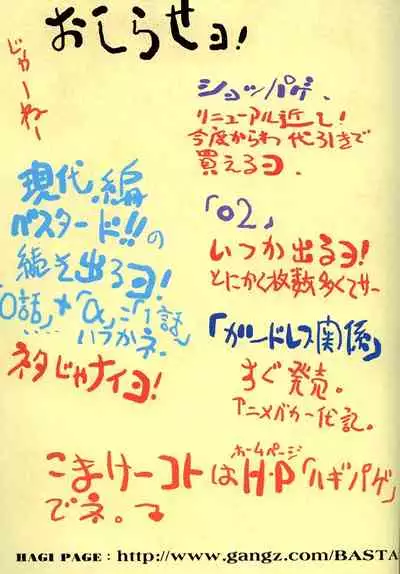 おしらせヨ!
じゃーねー
ショッパゲ、
リニューアル近し!
今度からわ代引きで
買えるヨ、
「02」
いつか出るヨ!
とにかく枚数多くてサー
現代編
バスタード!!の
続き出るヨ!
「0話」+「α」=「1話」
いつかネ。
ネタじゃナイヨ!
「ガンドレス関係」
すぐ発売。
アニメバカ一代記。
ホームページ
こまけーコトはH・P「ハギパゲ」
でネ。
HAGI PAGE : http://www.gangz.com/BASTA